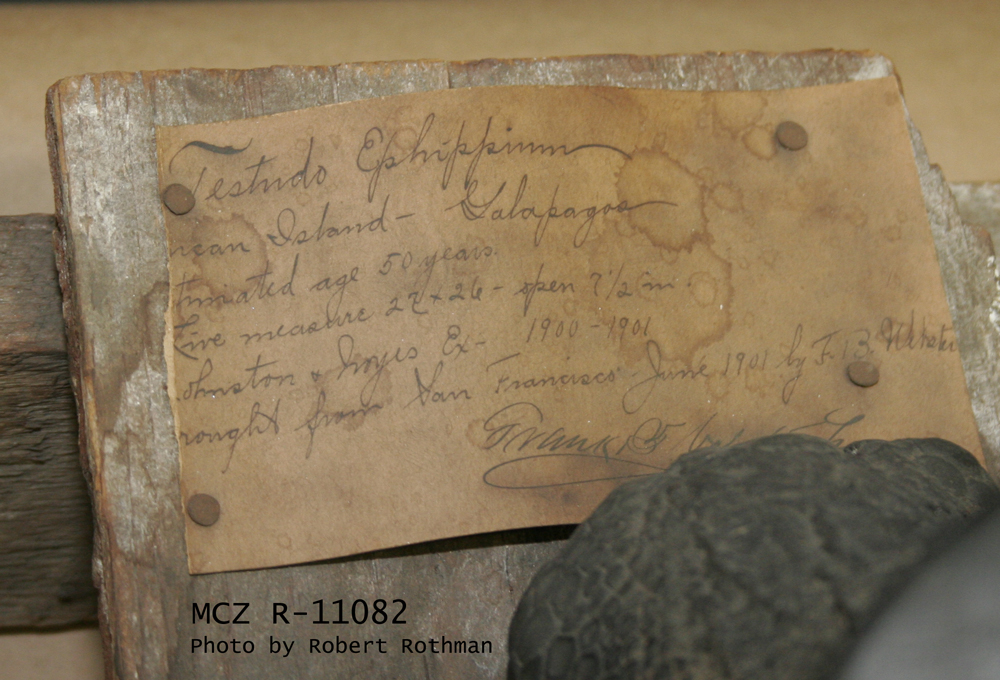 Testudo Ephippium
ncan Island - Galapagos
timated age 50 years.
Live measure 27 x 26 - open 7 1/2 in.
ohnston & Noyes Ex- 1900 - 1901
rought from San Francisco June 1901 by F. B. Webster
Frank B.
MCZ R-11082
Photo by Robert Rothman